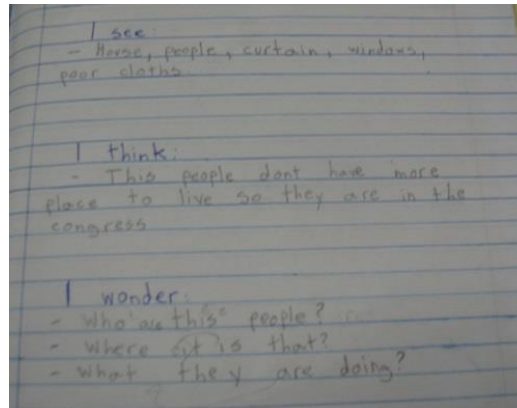 I see:
- House, people, curtain, windows,
poor cloths.
I think:
- This people dont have more
place to live so they are in the
congress
I wonder:
- Who are this people?
- Where it is that?
- What they are doing?